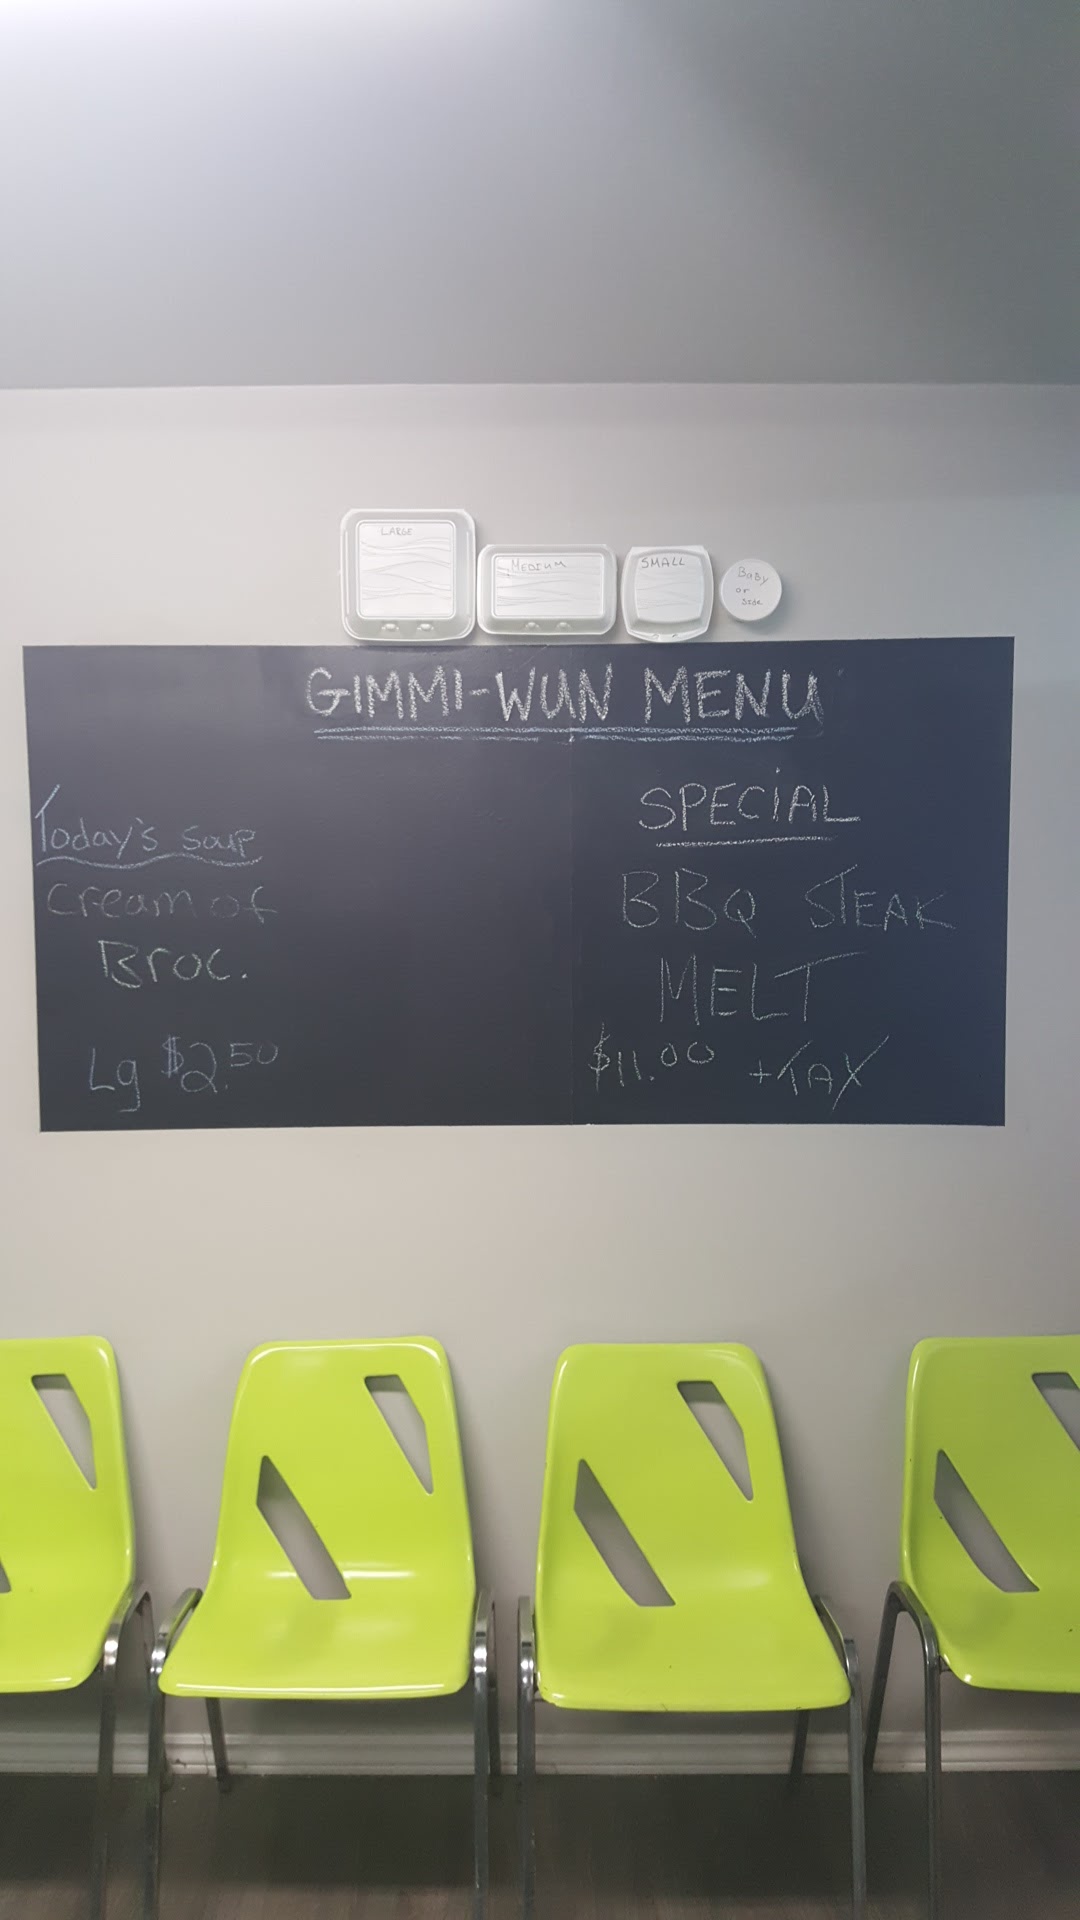 LARGE
MEDIUM
SMALL
Baby
or
side
GIMMI-WUN MENU
Today's soup
Cream of
Broc.
Lg $2.50
SPECIAL
BBQ STEAK
MELT
$11.00 +TAX